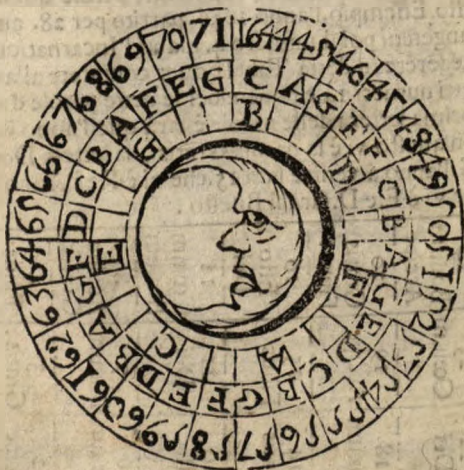 1644 45 46 47 48 49 50 51 52 53 54 55 56 57 58 59 60 61 62 63 64 65 66 67 68 69 70 71
C A G F F C B A G E D C B G F E D B A G F D C B A F E G
B D F A C E G